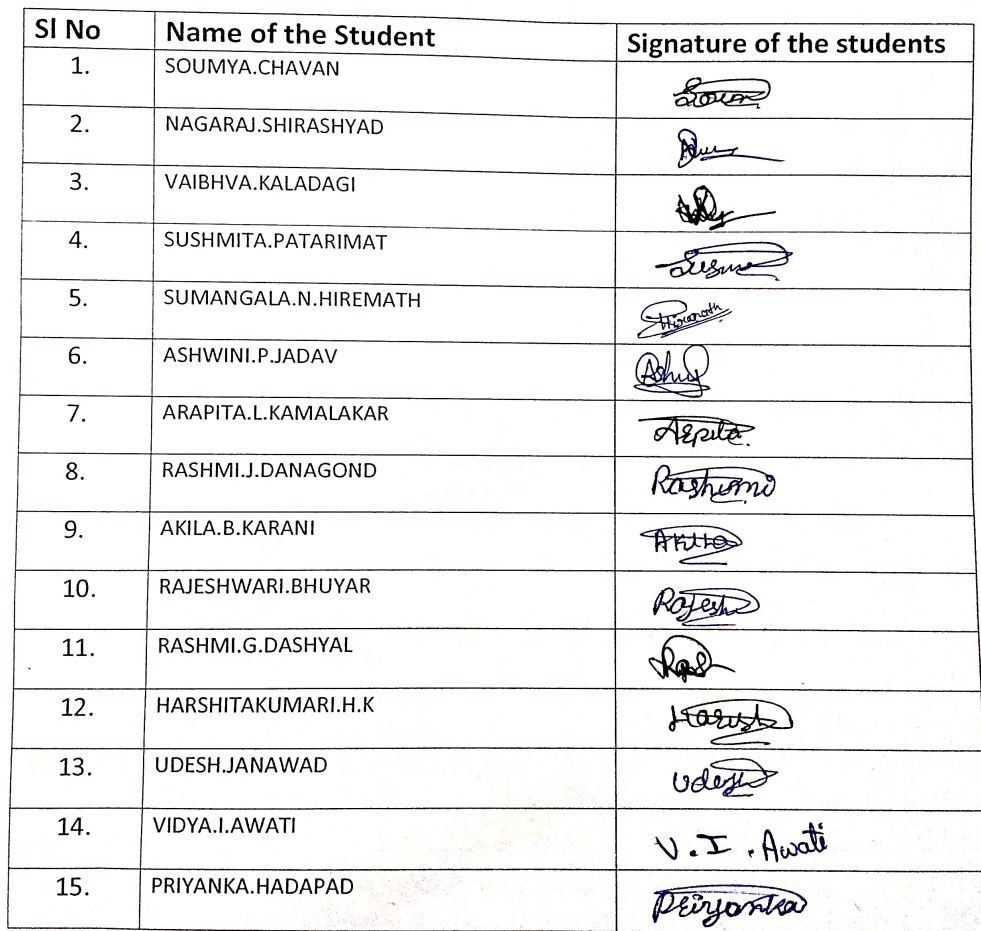 Sl No Name of the Student Signature of the students
1. SOUMYA.CHAVAN Soum
2. NAGARAJ.SHIRASHYAD
3. VAIBHVA.KALADAGI
4. SUSHMITA.PATARIMAT Susm
5. SUMANGALA.N.HIREMATH Hiremath
6. ASHWINI.P.JADAV Ashwj
7. ARAPITA.L.KAMALAKAR Arpita.
8. RASHMI.J.DANAGOND Rashmi
9. AKILA.B.KARANI Akila
10. RAJESHWARI.BHUYAR Rajesh
11. RASHMI.G.DASHYAL
12. HARSHITAKUMARI.H.K Harish
13. UDESH.JANAWAD Udesh
14. VIDYA.I.AWATI V.I.Awati
15. PRIYANKA.HADAPAD Priyanka